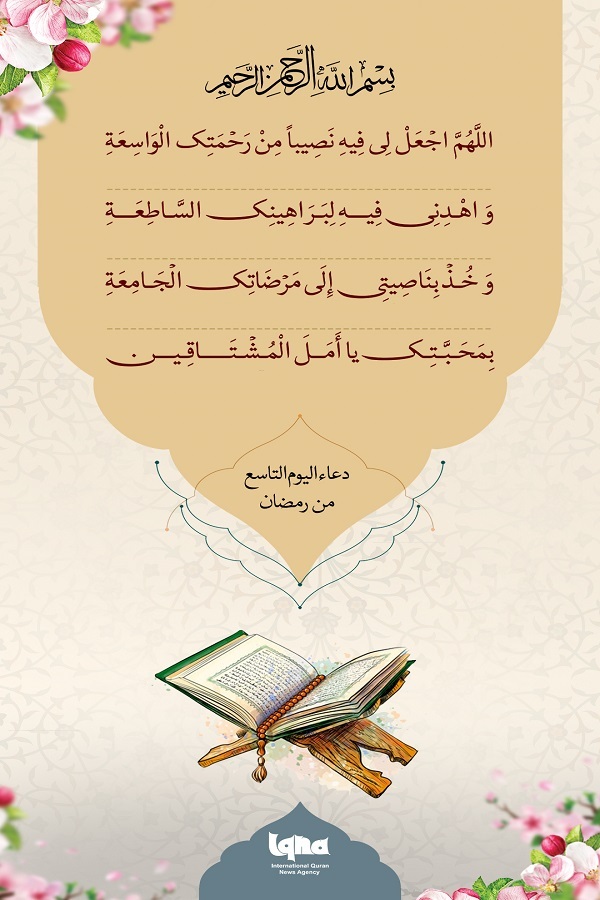 بِسْمِ اللَّهِ الرَّحْمَنِ الرَّحِيمِ
اللَّهُمَّ اجْعَلْ لِی فِیهِ نَصِیباً مِنْ رَحْمَتِک الْوَاسِعَةِ
وَ اهْدِنِی فِیهِ لِبَرَاهِینِک السَّاطِعَةِ
وَ خُذْ بِنَاصِیتِی إِلَى مَرْضَاتِک الْجَامِعَةِ
بِمَحَبَّتِک یا أَمَلَ الْمُشْتَاقِین
دعاء اليوم التاسع
من رمضان
Iqna
International Quran
News Agency